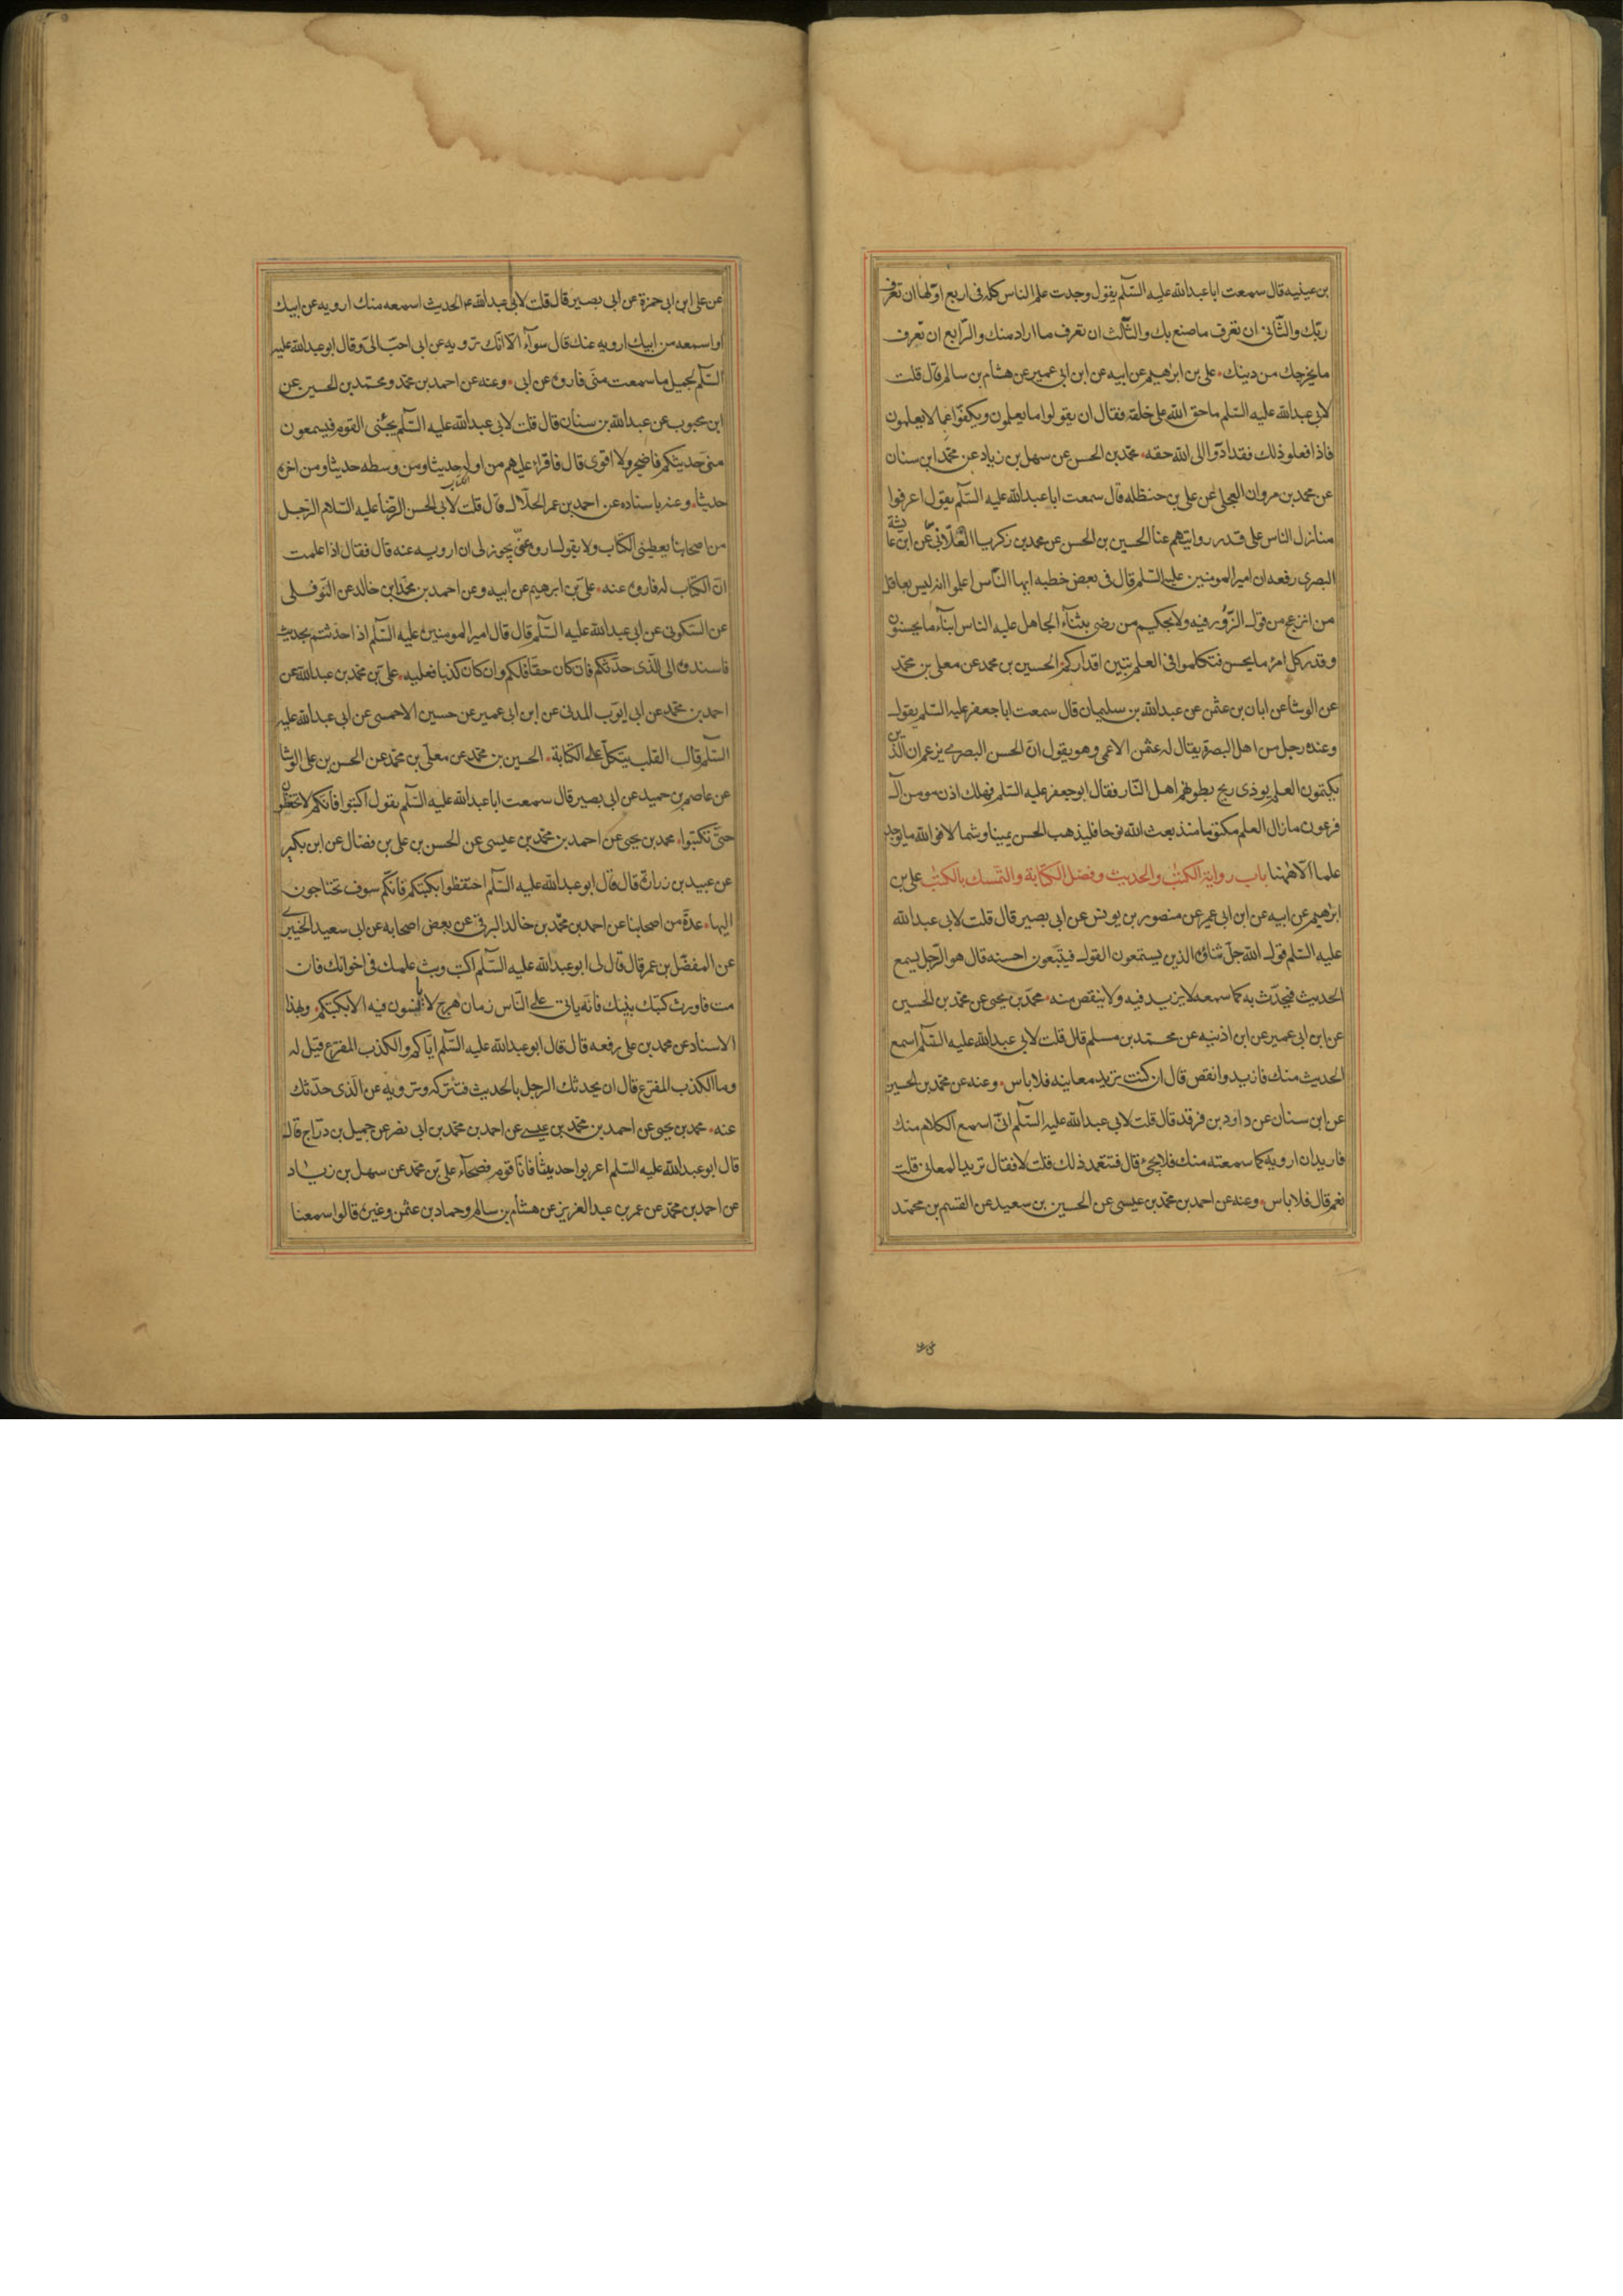 بن عيينه قال سمعت ابا عبدالله عليه السّلم يقول وجدت علم الناس كله فى اربع اوّلها ان تعرف
ربّك والثّانى ان تعرف ما صنع بك والثّالث ان تعرف ما اراد منك والرّابع ان تعرف
ما يخرجك من دينك، على بن ابرهيم عن ابيه عن ابن ابى عمير عن هشام بن سالم قال قلت
لابى عبدالله عليه السّلم ما حق الله على خلقه فقال ان يقولوا ما يعلمون ويكفّوا عما لا يعلمون
فاذا فعلو ذلك فقد ادّوا الى الله حقه، محمّد بن الحسن عن سهل بن زياد عن محمّد ابن سنان
عن محمد بن مروان العجلى عن على بن حنظله قال سمعت ابا عبدالله عليه السّلم يقول اعرفوا
منازل الناس على قدر روايتهم عنا الحسين بن الحسن عن محمد بن زكريا الغلّابى عن ابن عايشة
البصرى رفعه ان امير المومنين عليه السّلم قال فى بعض خطبه ايها النّاس اعلموا انه ليس بعاقل
من انزعج من قول الزّور فيه ولا بحكيم من رضى بثنآء الجاهل عليه الناس ابنآء ما يحسنون
وقدر كل امرء ما يحسن فتكلموا فى العلم تبين اقداركم الحسين بن محمد عن معلى بن محمّد
عن الوشا عن ابان بن عثمن عن عبدالله بن سليمان قال سمعت ابا جعفر عليه السّلم يقول
وعنده رجل من اهل البصرة يقال له عثمن الاعمى وهو يقول انّ الحسن البصرى يزعم ان الّذين
يكتمون العلم يوذى ريح بطونهم اهل النّار فقال ابو جعفر عليه السّلم فهلك اذن مومن آل
فرعون ما زال العلم مكتوما منذ بعث الله نوحا فليذهب الحسن يمينا وشمالا فوالله ما يوجد
علما الّا ههنا باب رواية الكتب والحديث وفضل الكتابة والتمسك بالكتب على بن
ابرهيم عن ابيه عن ابن ابى عمير عن منصور بن يونس عن ابى بصير قال قلت لابى عبدالله
عليه السّلم قول الله جلّ ثناؤه الذين يستمعون القول فيتّبعون احسنه قال هو الرّجل يسمع
الحديث فيحدّث به كما سمعه لا يزيد فيه ولا ينقص منه، محمّد بن يحيى عن محمّد بن الحسين
عن ابن ابى عمير عن ابن اذينه عن محمّد بن مسلم قال قلت لابى عبدالله عليه السّلم اسمع
الحديث منك فازيد وانقص قال ان كنت تريد معاينه فلا باس، وعنه عن محمّد بن الحسين
عن ابن سنان عن داود بن فرقد قال قلت لابى عبدالله عليه السّلم انّى اسمع الكلام منك
فاريد ان ارويه كما سمعته منك فلا يجئ قال فتتعمد ذلك قلت لا فقال تريد المعانى قلت
نعم قال فلا باس، وعنه عن احمد بن محمّد بن عيسى عن الحسين بن سعيد عن القسم بن محمّد
عن على ابن ابى حمزة عن ابى بصير قال قلت لابى عبدالله ع الحديث اسمعه منك ارويه عن ابيك
او اسمعه من ابيك ارويه عنك قال سوآء الّا انّك ترويه عن ابى احبّ الىّ وقال ابو عبدالله عليه
السّلم لجميل ما سمعت منّى فاروه عن ابى، وعنه عن احمد بن محمّد ومحمّد بن الحسين عن
ابن محبوب عن عبدالله بن سنان قال قلت لابى عبدالله عليه السّلم يجئنى القوم فيسمعون
منى حديثكم فاضجر ولا اقوى قال فاقرا عليهم من اوله حديثا ومن وسطه حديثا ومن اخره
حديثا، وعنه باسناده عن احمد بن عمر الحلّال قال قلت لابى الحسن الرّضا عليه السّلام الرّجل
من اصحابنا يعطينى الكتاب ولا يقول اروه عنّى يجوز لى ان ارويه عنه قال فقال اذا علمت
انّ الكتاب له فاروه عنه، علىّ بن ابرهيم عن ابيه وعن احمد بن محمّد ابن خالد عن النّوفلى
عن السّكونى عن ابى عبدالله عليه السّلم قال قال امير المومنين عليه السّلم اذا حدّثتم بحديث
فاسندوه الى الّذى حدّثكم فان كان حقّا فلكم وان كان كذبا فعليه، علىّ بن محمّد بن عبدالله عن
احمد بن محمّد عن ابى ايّوب المدنى عن ابن ابى عمير عن حسين الاحمسى عن ابى عبدالله عليه
السّلم قال القلب يتّكل على الكتابة، الحسين بن محمّد عن معلّى بن محمّد عن الحسن بن على الوشّا
عن عاصم بن حميد عن ابى بصير قال سمعت ابا عبدالله عليه السّلم يقول اكتبوا فانّكم لا تحفظون
حتّى تكتبوا، محمد بن يحيى عن احمد بن محمّد بن عيسى عن الحسن بن على بن فضّال عن ابن بكير
عن عبيد بن زرارة قال قال ابو عبدالله عليه السّلم احتفظوا بكتبكم فانّكم سوف تحتاجون
اليها، عدّة من اصحابنا عن احمد بن محمّد بن خالد البرقى عن بعض اصحابه عن ابى سعيد الخيبرى
عن المفضّل بن عمر قال قال لى ابو عبدالله عليه السّلم اكتب وبث علمك فى اخوانك فان
مت فاورث كتبك بنيك فانّه ياتى على النّاس زمان هرج لا يانسون فيه الا بكتبكم، وبهذا
الاسناد عن محمد بن على رفعه قال قال ابو عبدالله عليه السّلم ايّاكم والكذب المفترع قيل له
وما الكذب المفترع قال ان يحدثك الرجل بالحديث فتتركه وترويه عن الّذى حدّثك
عنه، محمد بن يحيى عن احمد بن محمّد بن عيسى عن احمد بن محمّد بن ابى نصر عن جميل بن درّاج قال
قال ابو عبدالله عليه السّلم اعربوا حديثنا فانّا قوم فصحآء على بن محمّد عن سهل بن زياد
عن احمد بن محمّد عن عمر بن عبد العزيز عن هشام بن سالم وحماد بن عثمن وغيره قالوا سمعنا